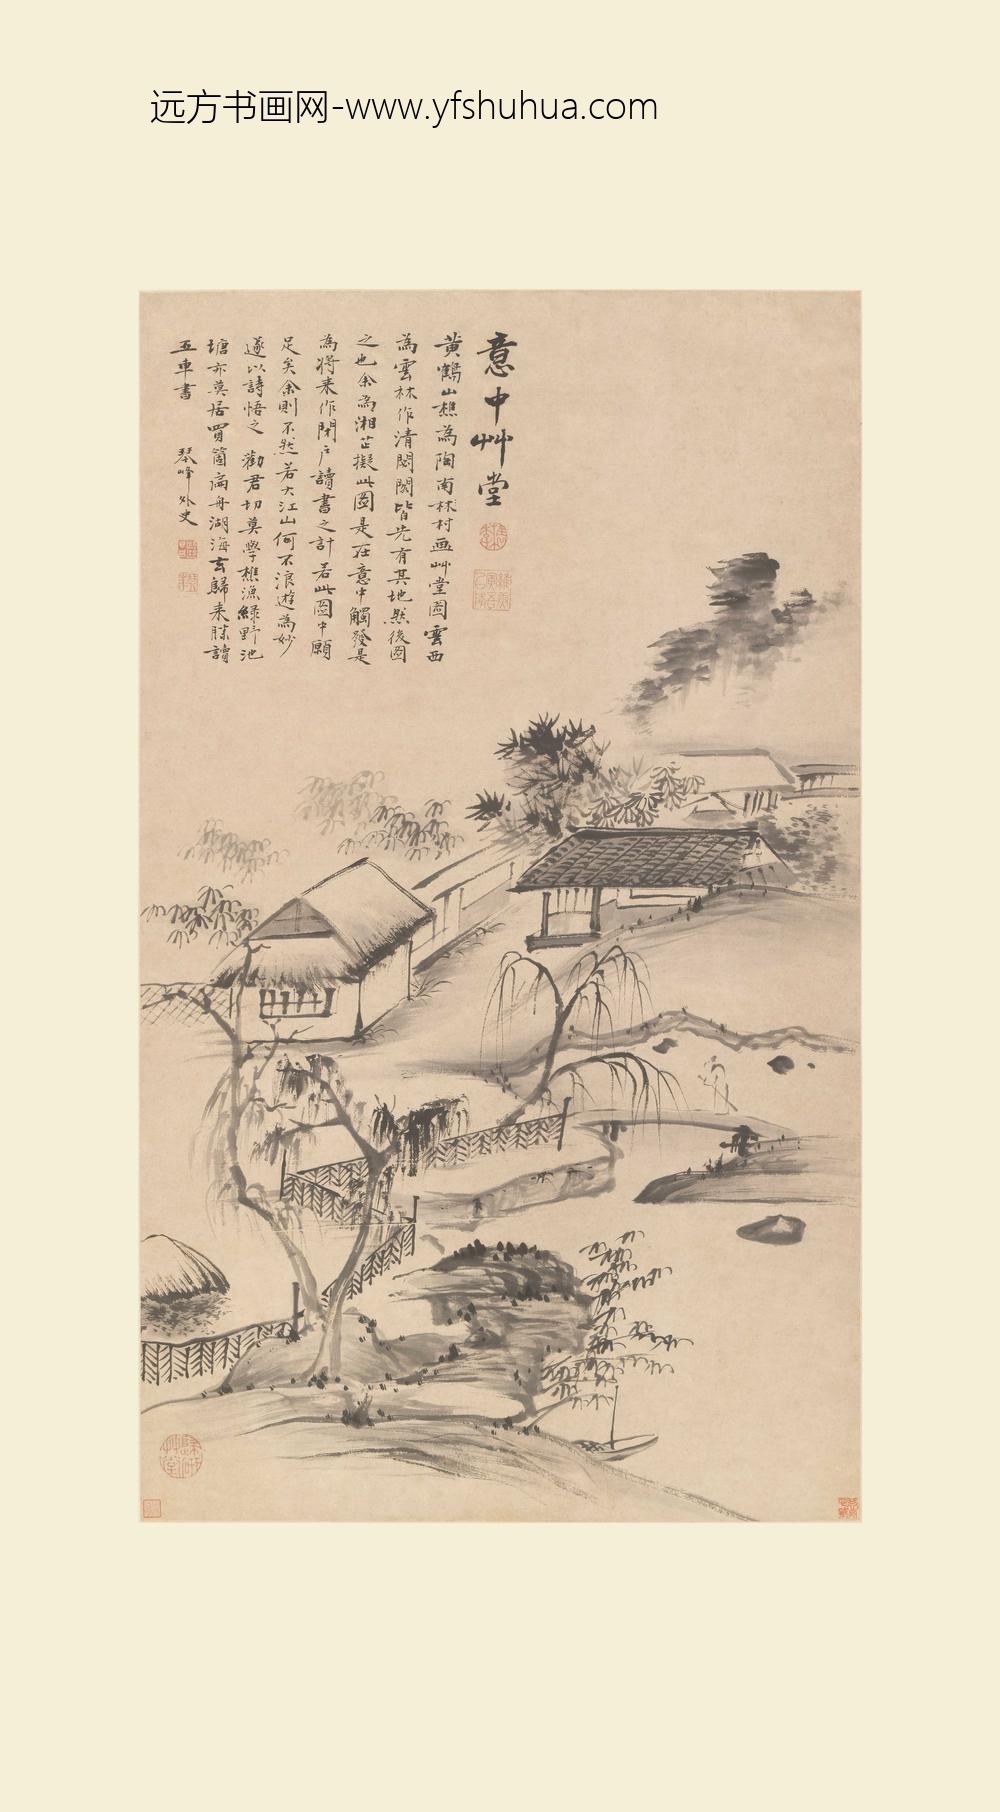 远方书画网-www.yfshuhua.com
意中艸堂
黄鶴山樵為陶南林村画艸堂圖雲西
為雲林作清閟閣皆先有其地然後圖
之也余為湘芷擬此圖是在意中觸發是
為將来作閉户讀書之計若此圖中願
足矣余則不然若大江山何不浪遊為妙
遂以詩悟之 勸君切莫學樵漁緑野池
塘亦莫居買箇扁舟湖海去歸来勝讀
五車書 琴峰外史